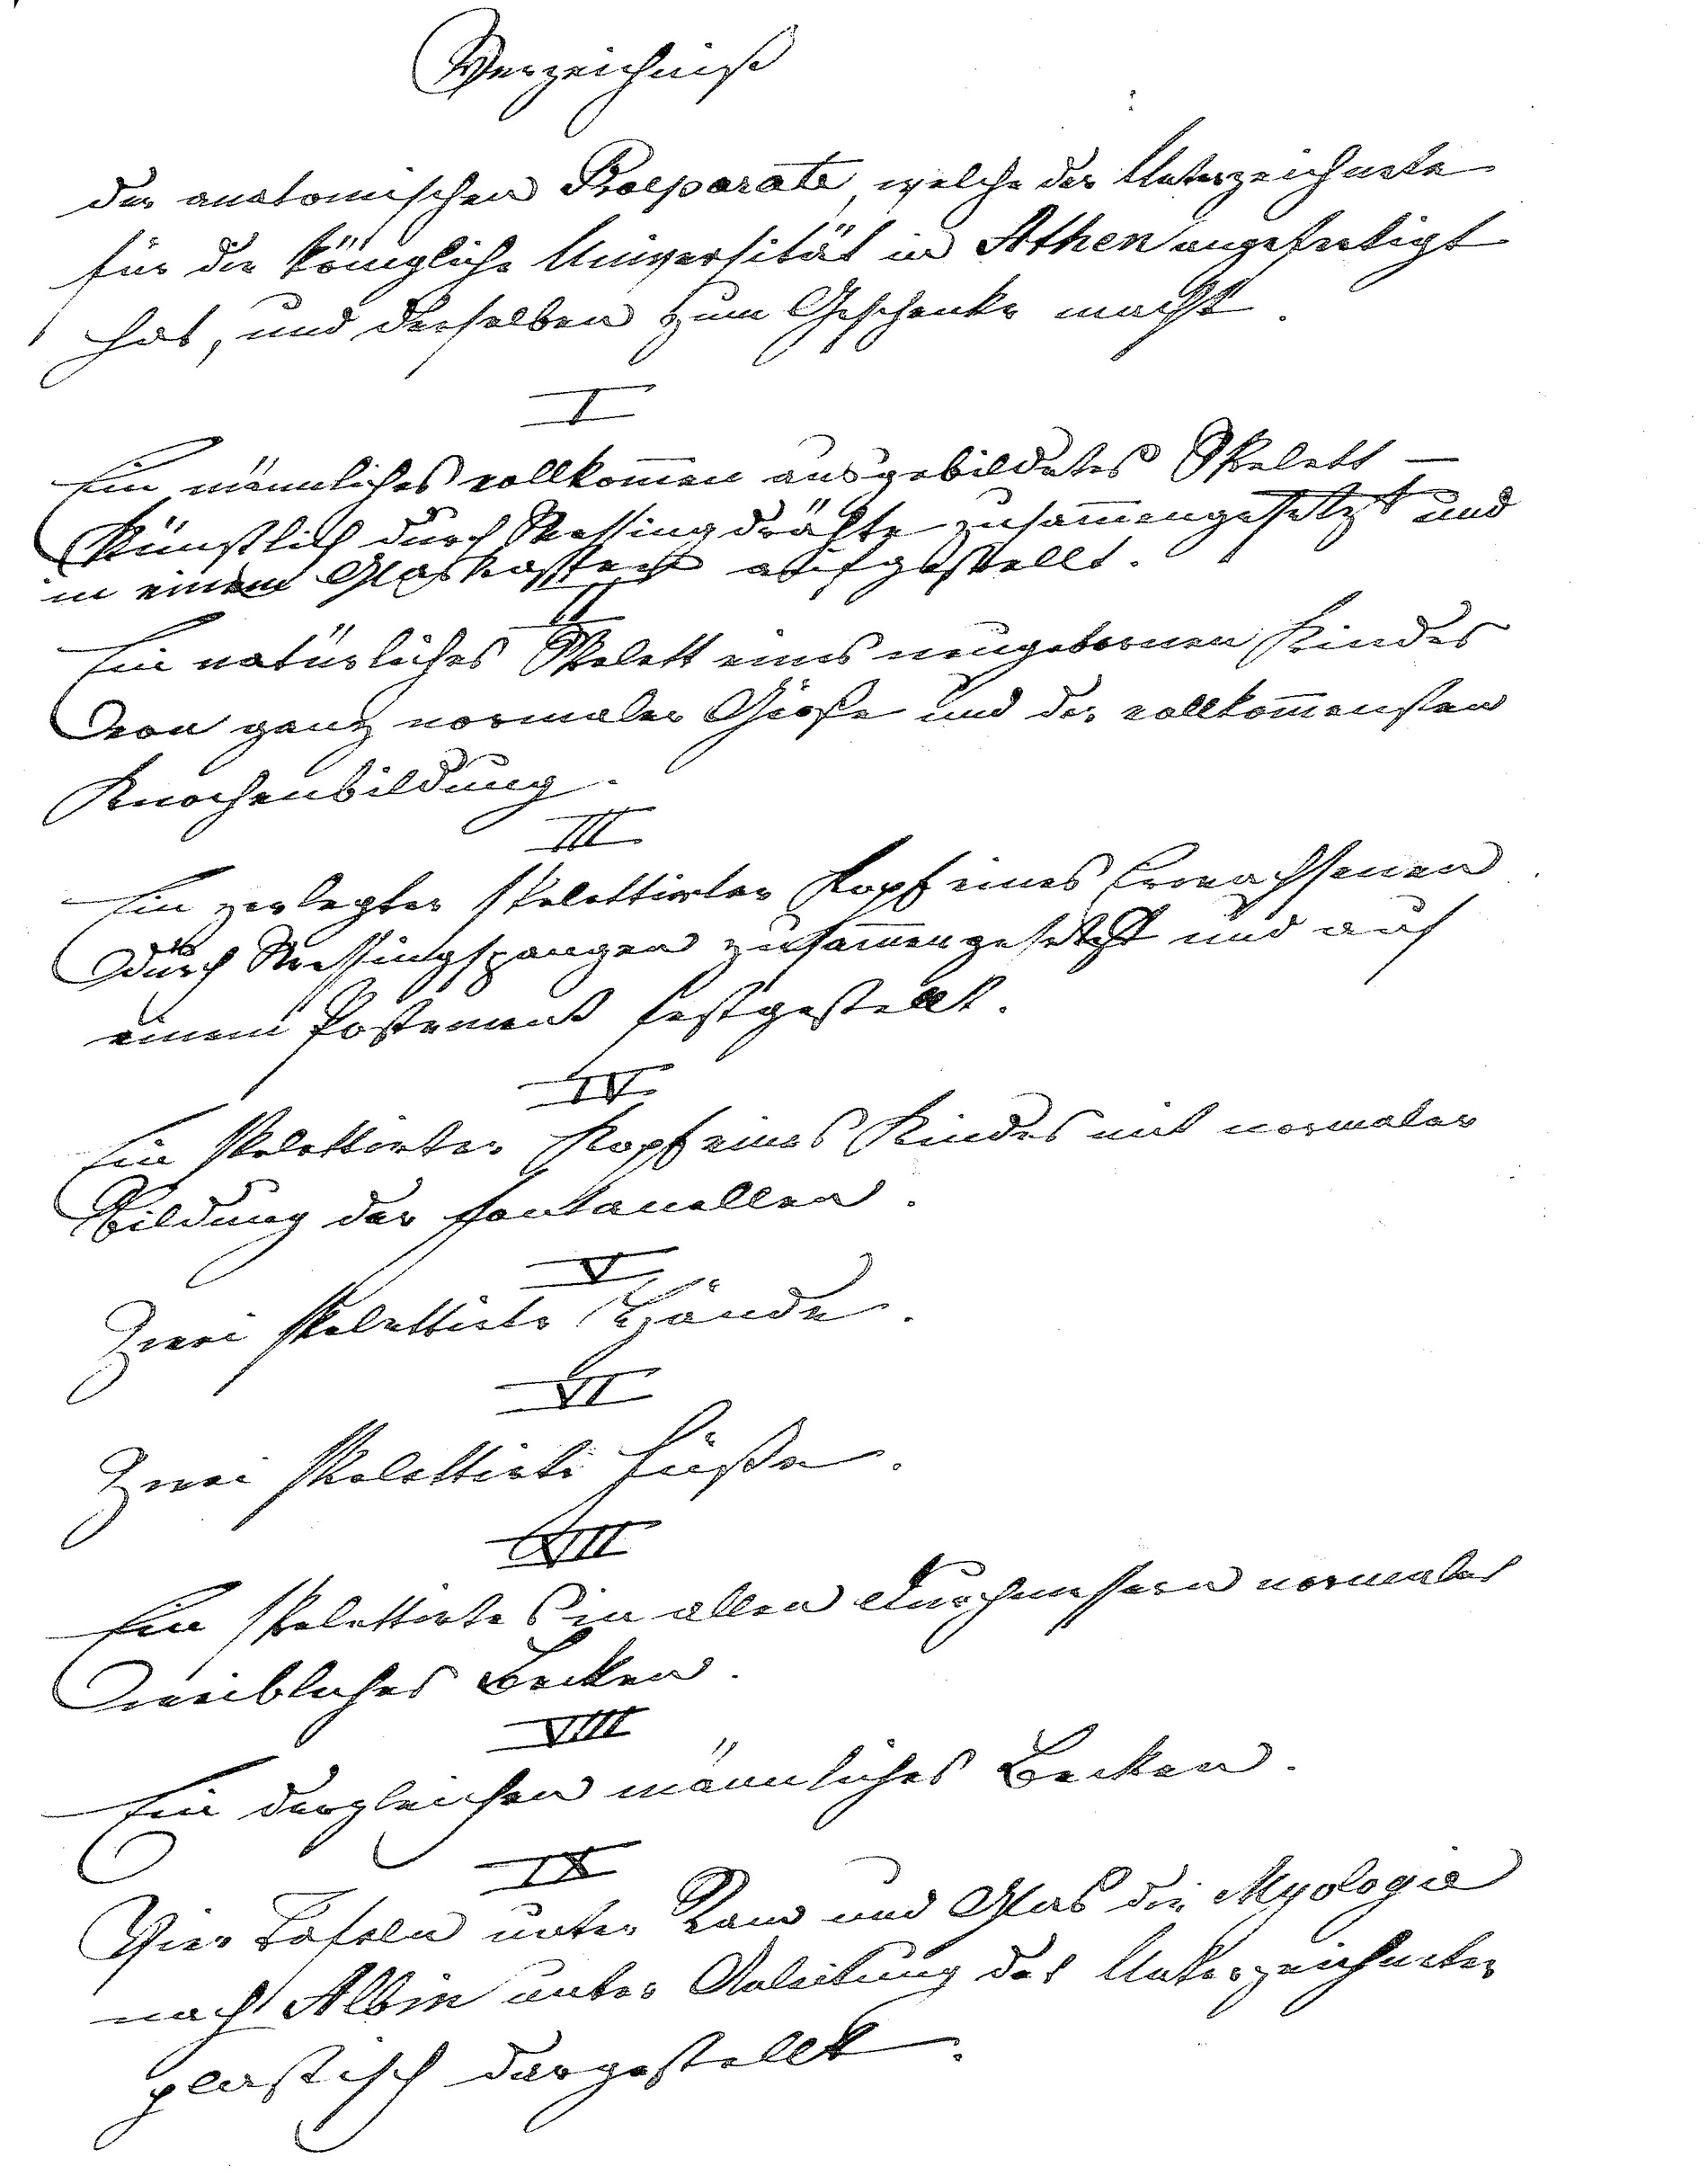 Verzeichniß
der anatomischen Praeparate, welche der Unterzeichnete
für die königliche Universität in Athen angefertigt
hat, und derselben zum Geschenke macht.
I
Ein männliches vollkom̅en ausgebildetes Skelett —
künstlich durch Messingdrähte zusam̅engesetzt und
in einem Glaskasten aufgestellt.
II
Ein natürliches Skelett eines neugebornen Kindes
von ganz normaler Größe und der vollkom̅ensten
Knochenbildung.
III
Ein zerlegter skelettirter Kopf eines Erwachsenen
durch Messingspangen zusam̅engesetzt und auf
einem Postement festgestellt.
IV
Ein skelettirter Kopf eines Kindes mit normaler
Bildung der Fontanellen.
V
Zwei skelettirte Hände.
VI
Zwei skelettirte Füße.
VII
Ein skelettirtes in allen Durchmessern normales
weibliches Becken.
VIII
Ein dergleichen männliches Becken.
IX
Vier Tafeln unter Ram und Glas die Myologie
nach Albin unter Anleitung des Unterzeichneten
plastisch dargestellt.